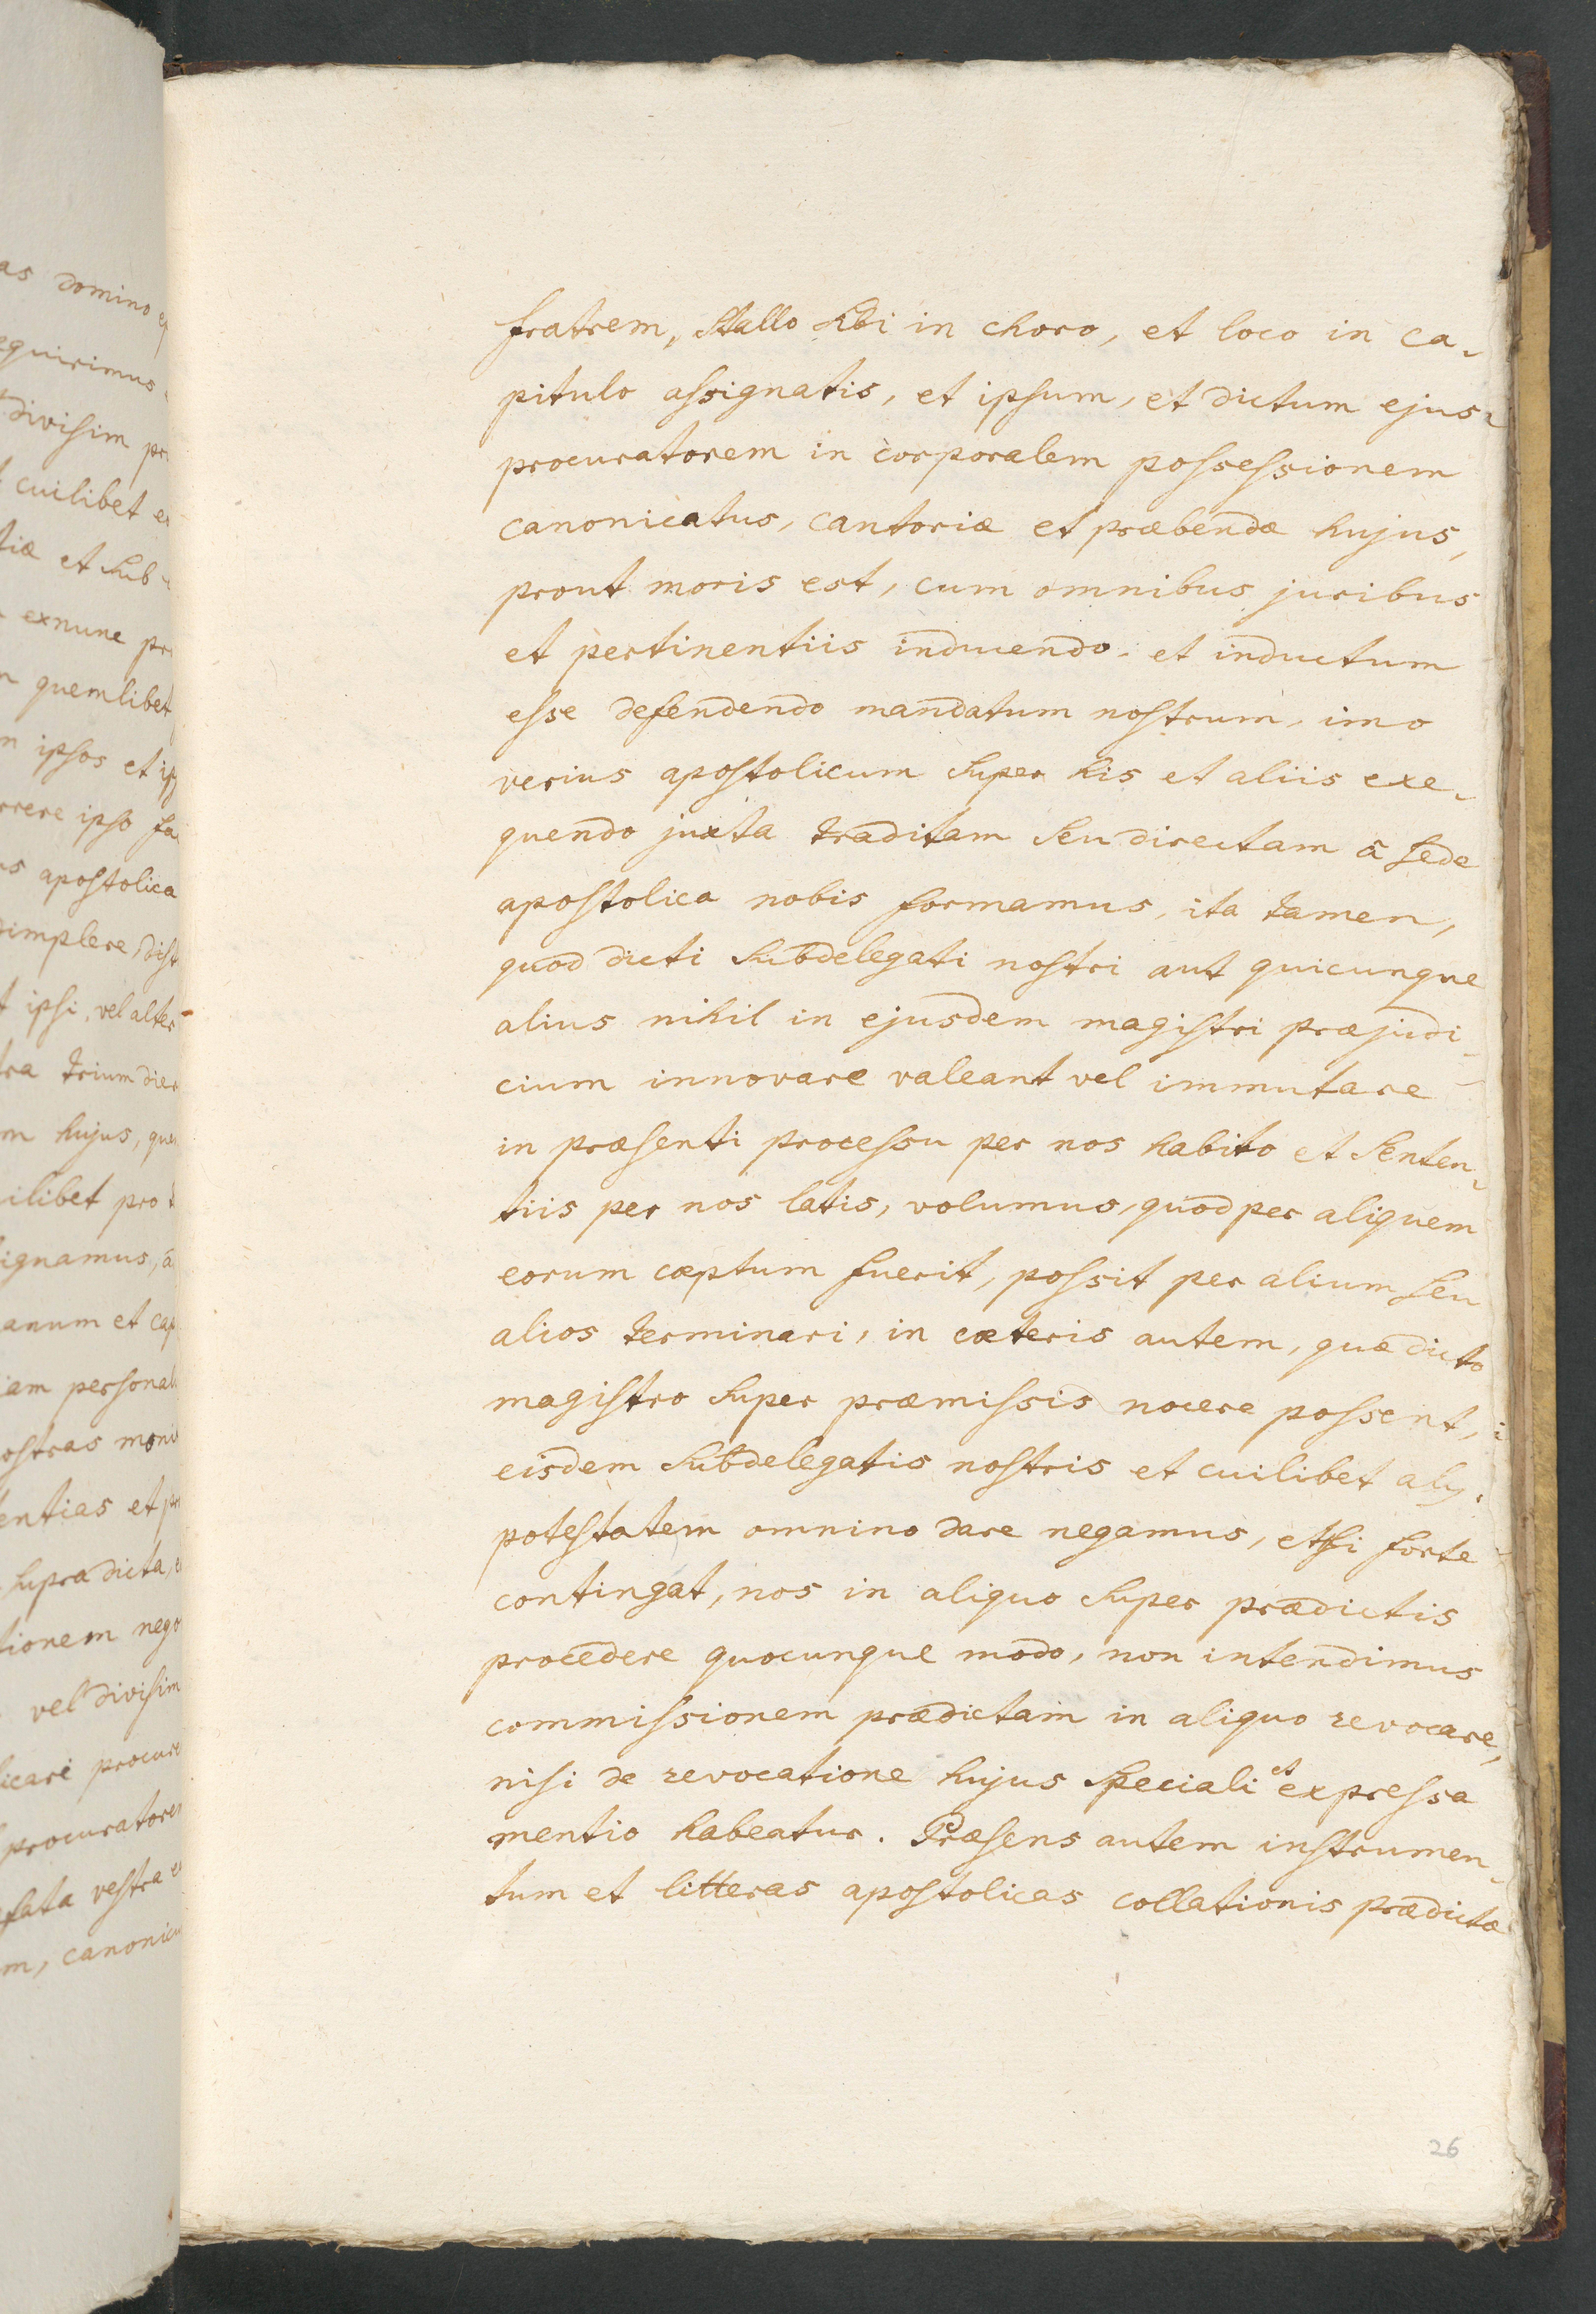 as domino
equirimus
divisim
cuilibet
tiæ et sub
exnunc
quemlibet
ipsos et
ipso
apostolica
dimplere
ipsi, vel alter
trium
hujus,
ilibet pro
anum et
ostras
entias et
supra dicta,
tionem
vel divisim
vestra
fratrem, stallo sibi in choro, et loco in ca-
pitulo assignatis, et ipsum, et dictum ejus
procuratorem in corporalem possessionem
canonicatus, cantoriæ et præbendæ hujus,
prout moris est, cum omnibus juribus
et pertinentiis inducendo, et inductum
esse defendendo mandatum nostrum, imo
verius apostolicum super his et aliis exe-
quendo juxta traditam seu directam â sede
apostolica nobis formamus, ita tamen,
quod dicti subdelegati nostri aut quicunque
alius nihil in ejusdem magistri præjudi-
cium innovare valeant vel immutare
in præsenti processu per nos habito et senten-
tiis per nos latis, volumus, quod per aliquem
eorum cæptum fuerit, possit per alium seu
alios terminari, in cæteris autem, quæ dicto
magistro super præmissis nocere possent,
eisdem subdelegatis nostris et cuilibet alij
potestatem omnino dare negamus, etsi forte
contingat, nos in aliquo super prædictis
procedere quocunque modo, non intendimus
commissionem prædictam in aliquo revocare,
nisi de revocatione hujus speciali et expressa
mentio habeatur. Præsens autem instrumen-
tum et litteras apostolicas collationis prædictæ
26